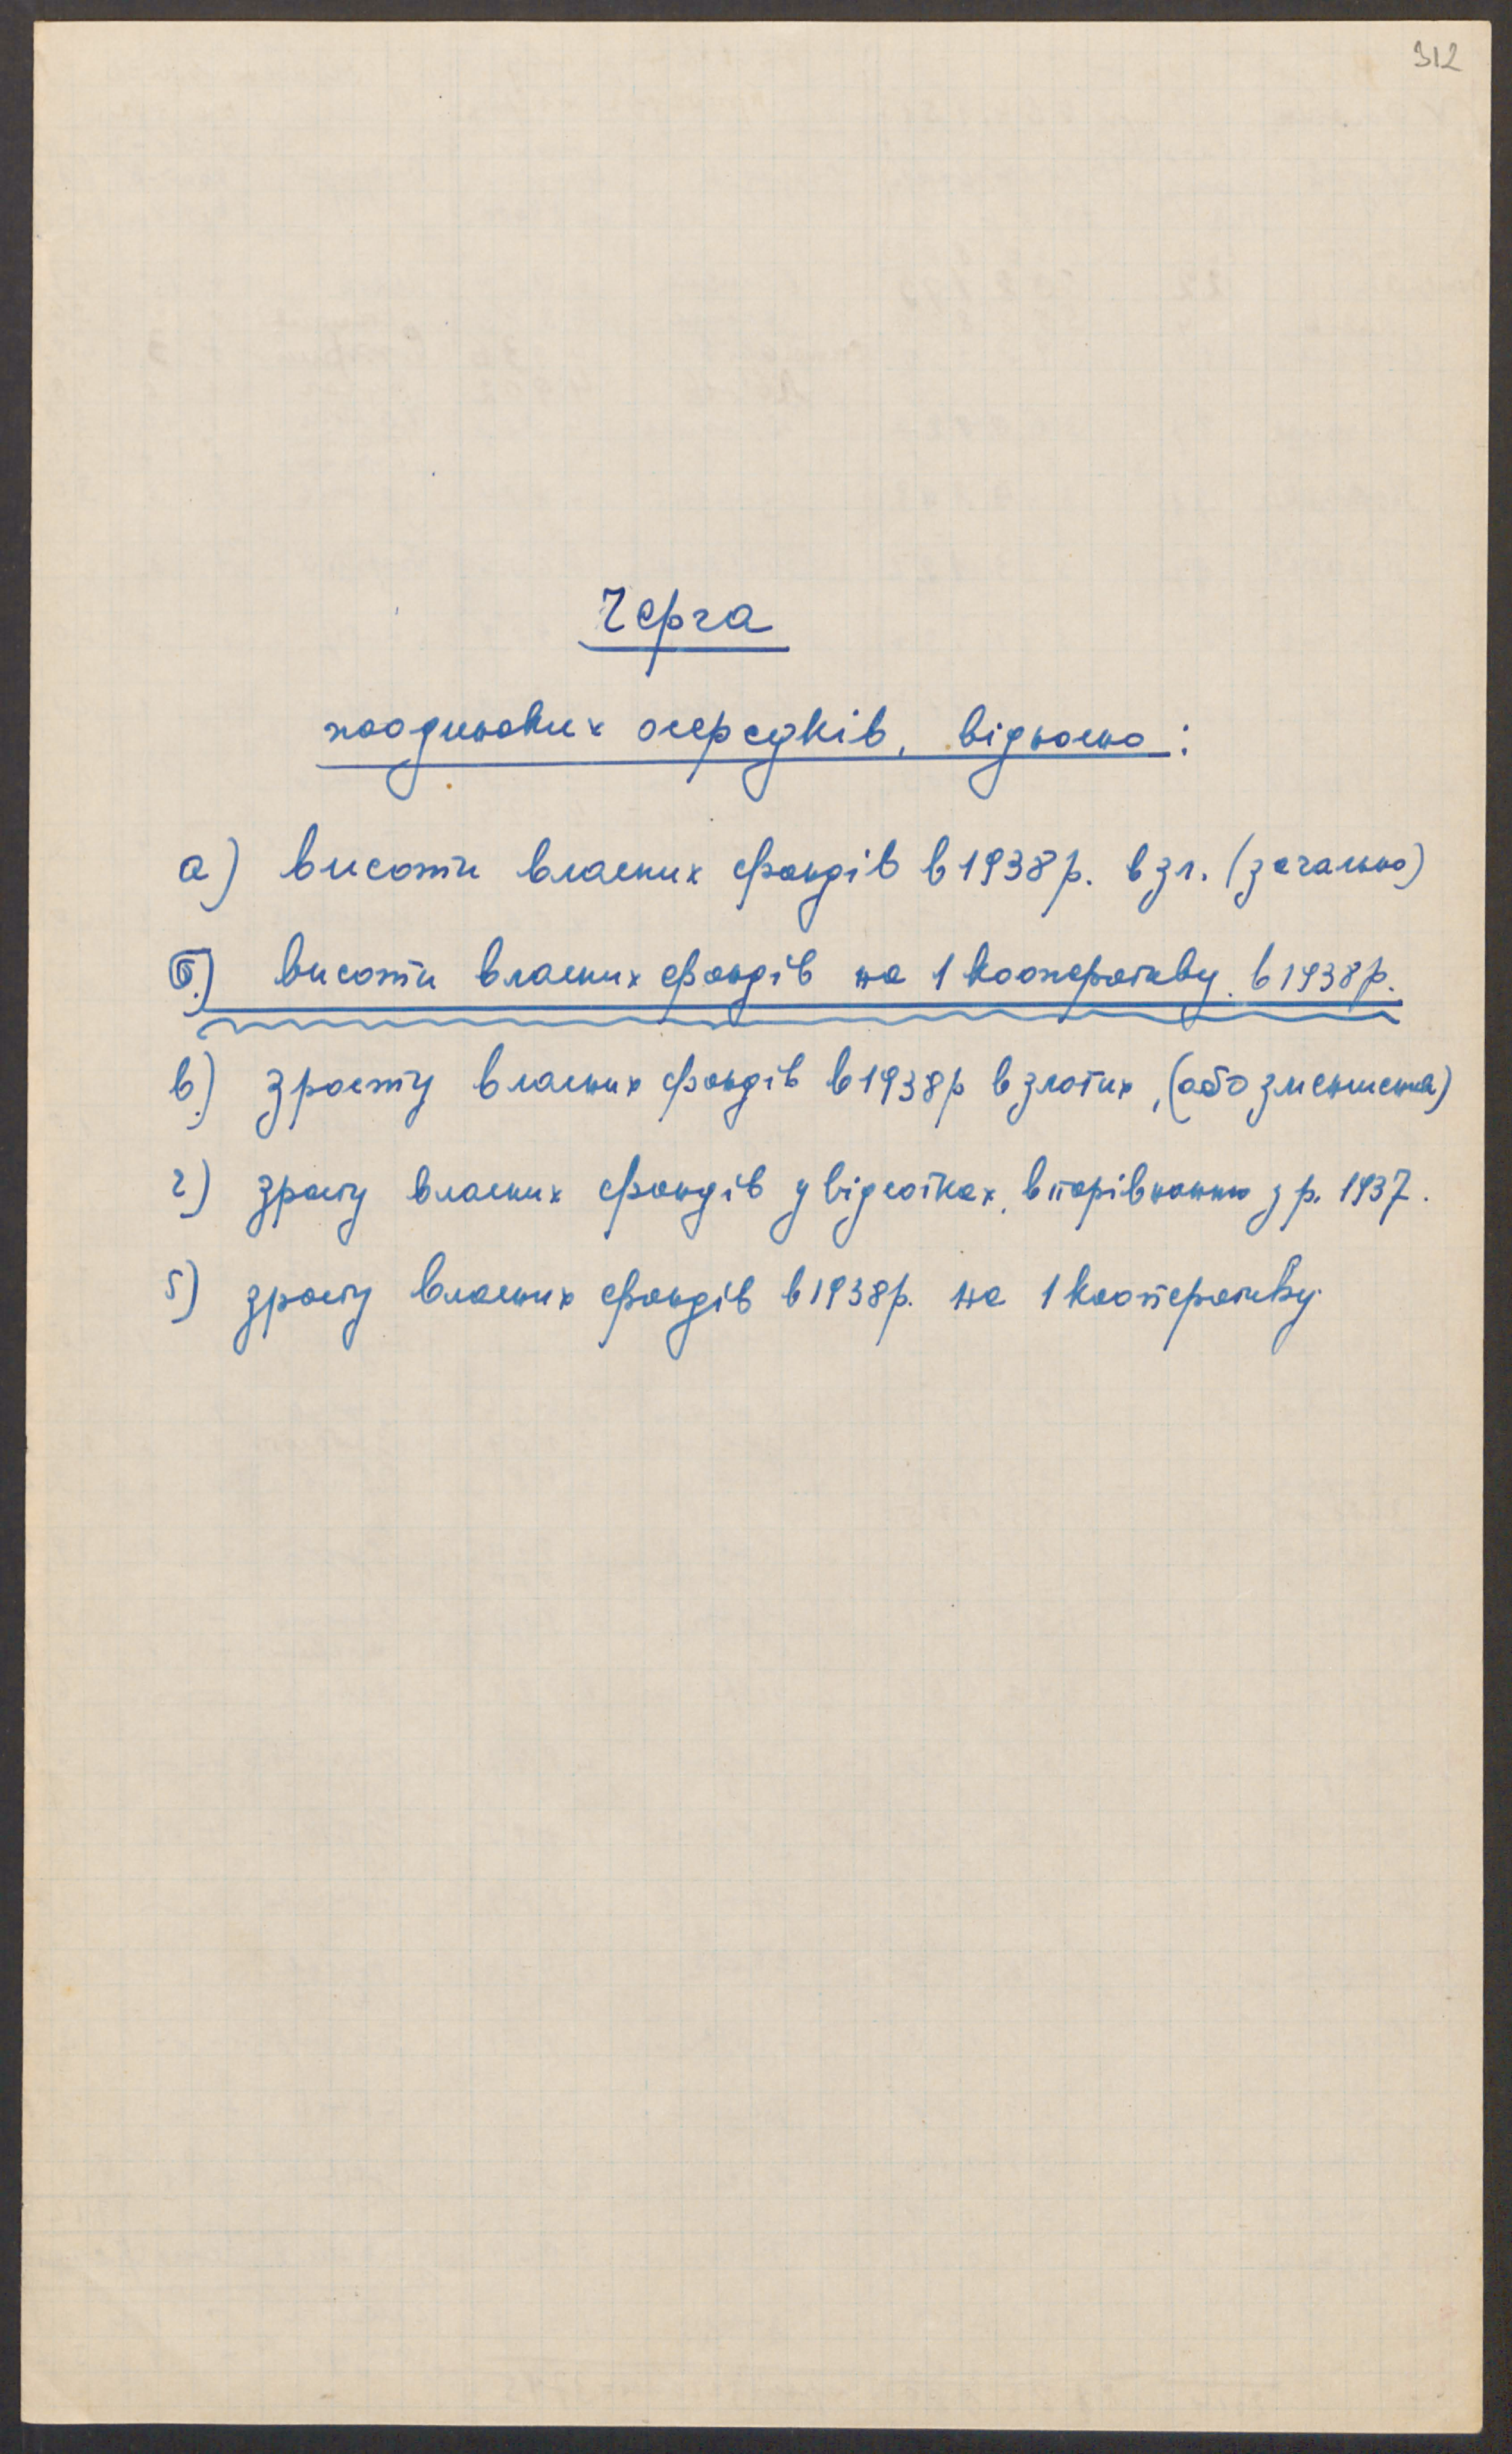 312
Черга
поодиноких осередків, відносно:
а) висоти власних фондів в 1938 р. в зл. (загально)
б) висоти власних фондів на 1 кооперативу в 1938 р.
в) зросту власних фондів в 1938 р в злотих, (або зменшення)
г) зросту власних фондів у відсотках, в порівнанню з р. 1937.
5) зросту власних фондів в 1938 р. на 1 кооперативу